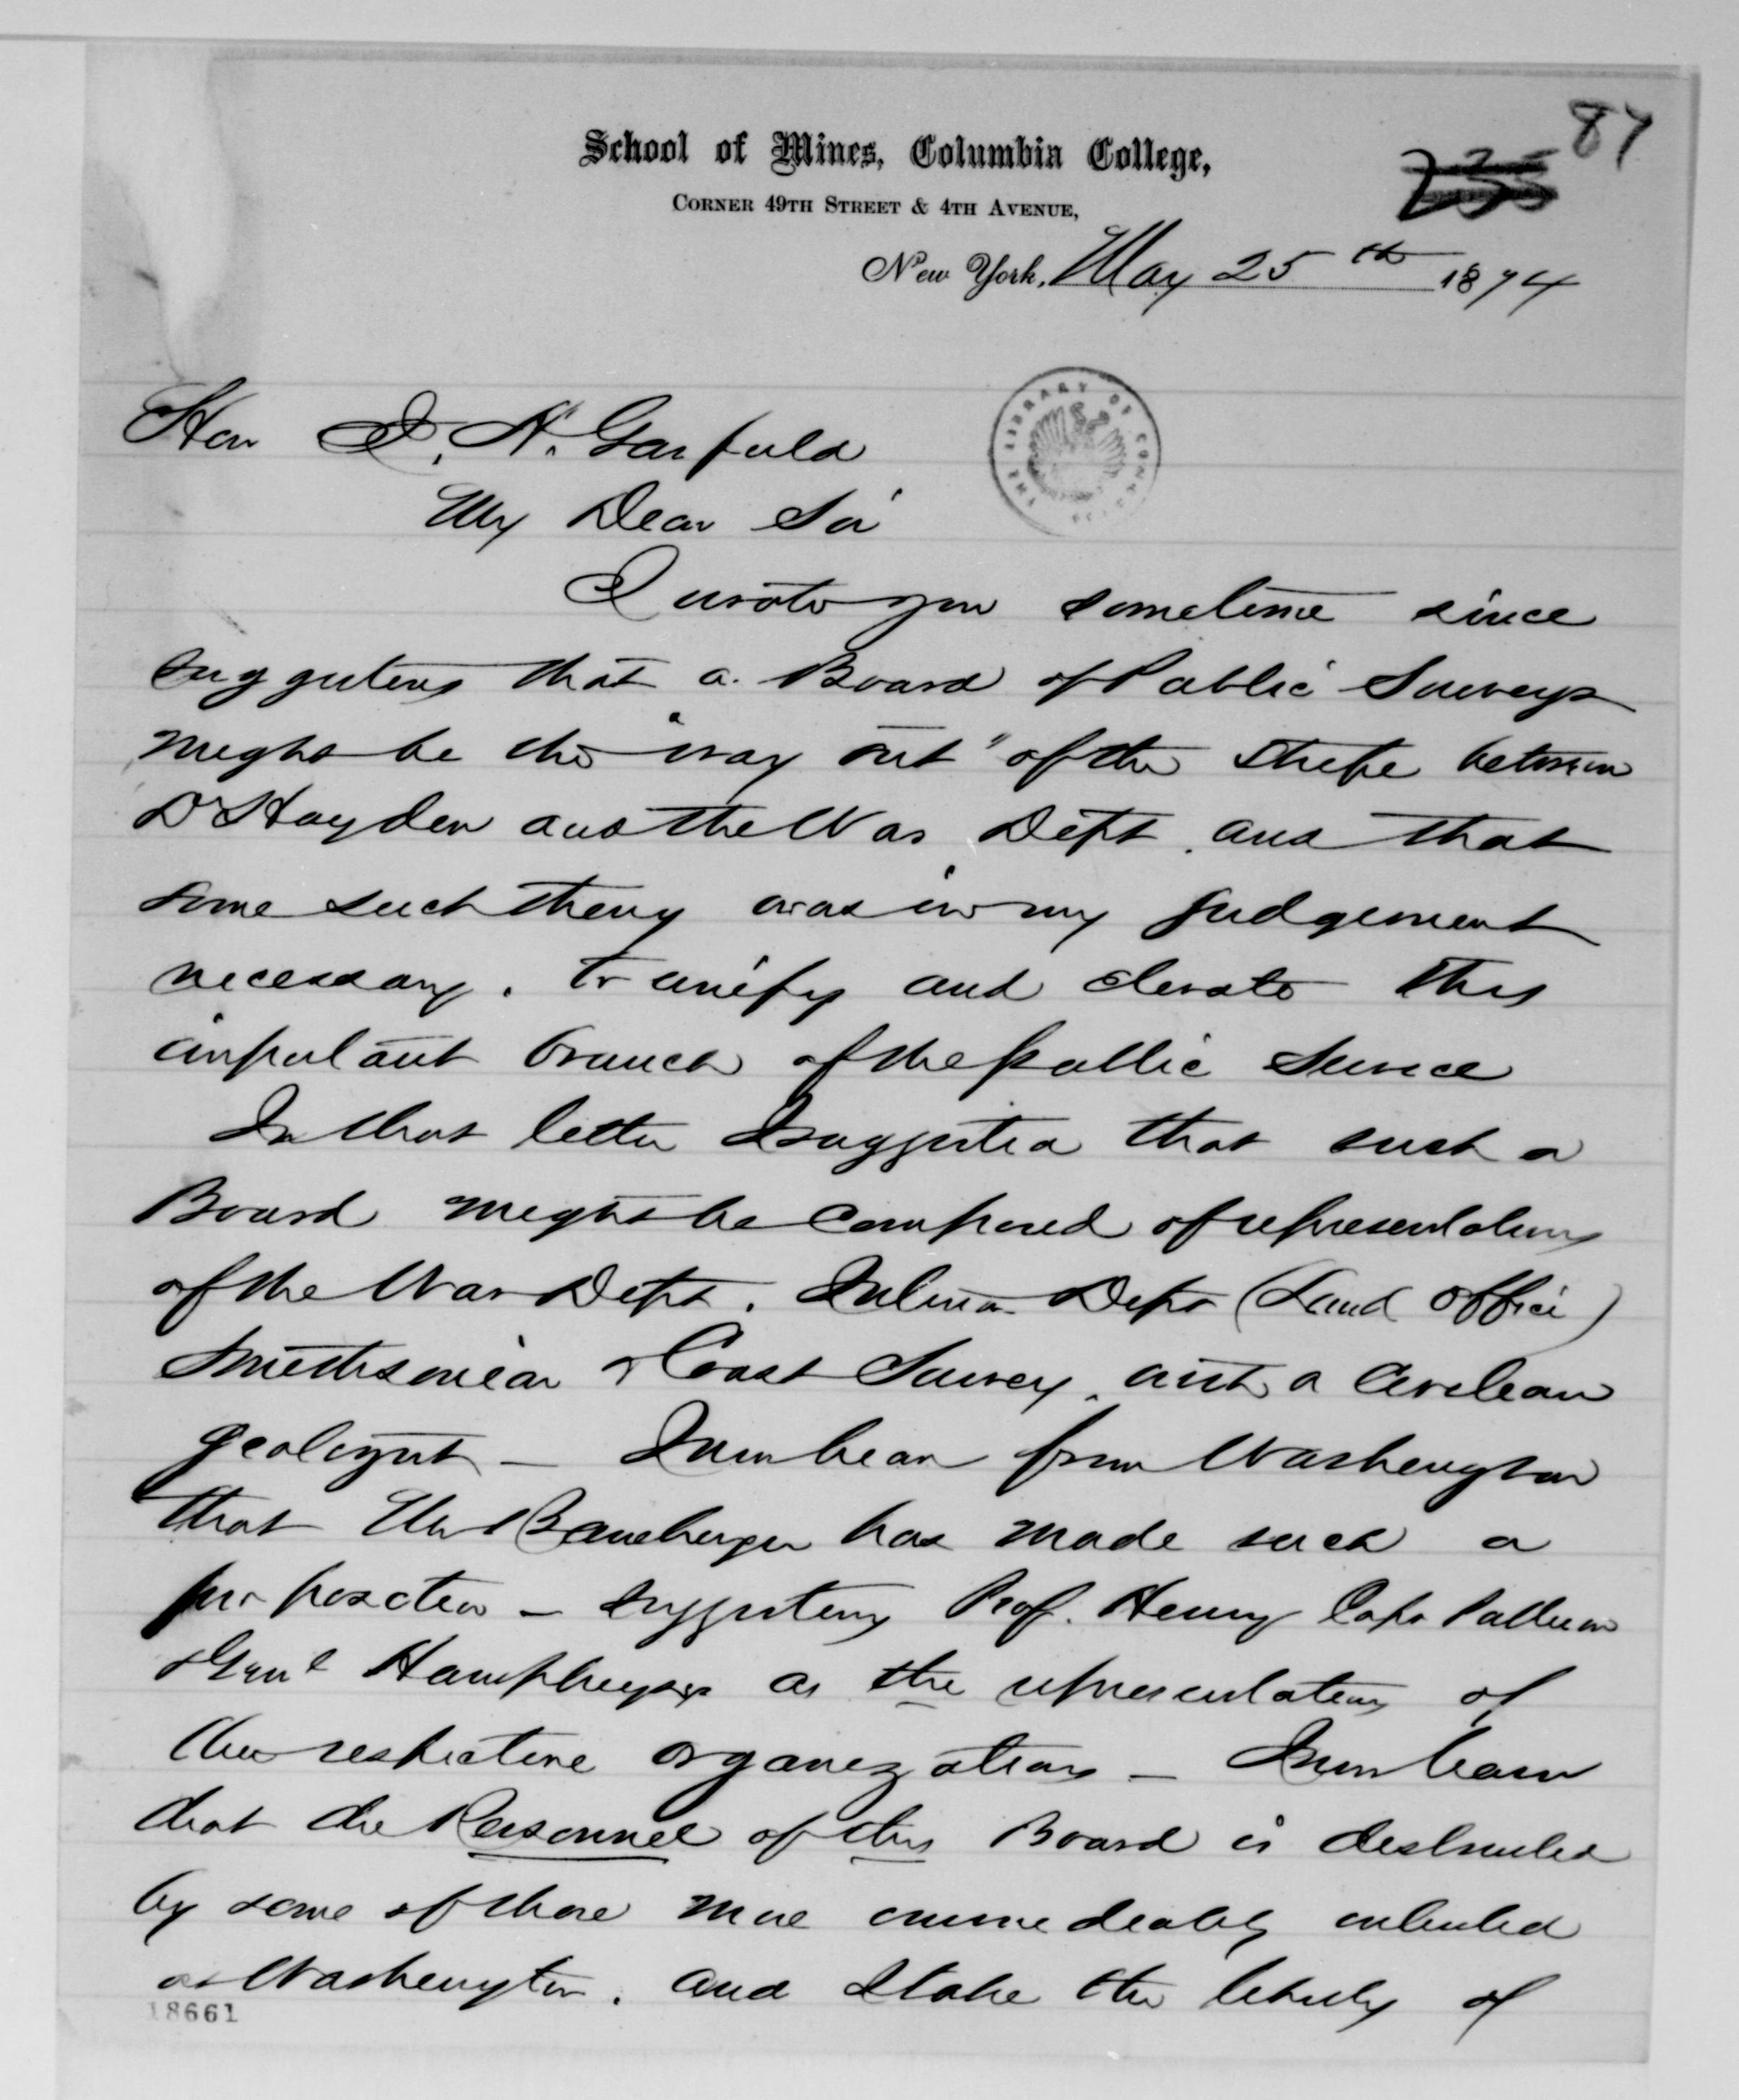 87
School of Mines, Columbia College,
235
Corner 49th Street & 4th Avenue,
New York, May 25th 1874
THE LIBRARY OF CONGRESS
Hon J. A. Garfield
My Dear Sir
I wrote you sometime since
suggesting that a Board of Public Surveys
might be the "way out" of the strife between
Dr Hayden and the War Dept. and that
some such thing was in my judgement
necessary, to unify and elevate this
important branch of the public service
In that letter I suggested that such a
Board might be composed of representatives
of the War Dept. Interior Dept (Land Office)
Smithsonian & Coast Survey, with a civilian
geologist — I now hear from Washington
that Mr Baneberger has made such a
proposition — suggesting Prof. Henry Capt Patterson
& Genl Humphreys as the representatives of
their respective organizations — I now learn
that the Personnel of this Board is distrusted
by some of those more immediately interested
at Washington, and I take the liberty of
18661